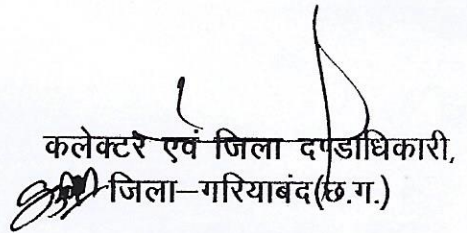 कलेक्टर एवं जिला दण्डाधिकारी,
जिला–गरियाबंद(छ.ग.)